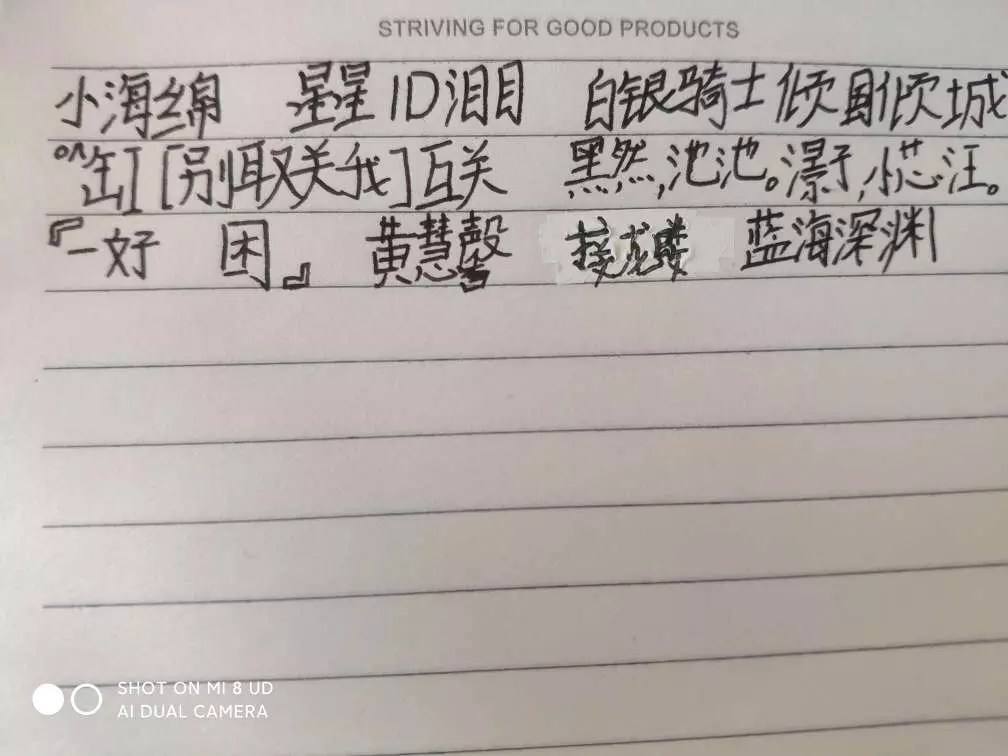 STRIVING FOR GOOD PRODUCTS
小海绵 星星ID泪目 白银骑士倾国倾城
[别取关我]互关 黑然,池池。濠,小芯汪。
『一好 困』 黄慧馨 蓝海深渊
SHOT ON MI 8 UD
AI DUAL CAMERA